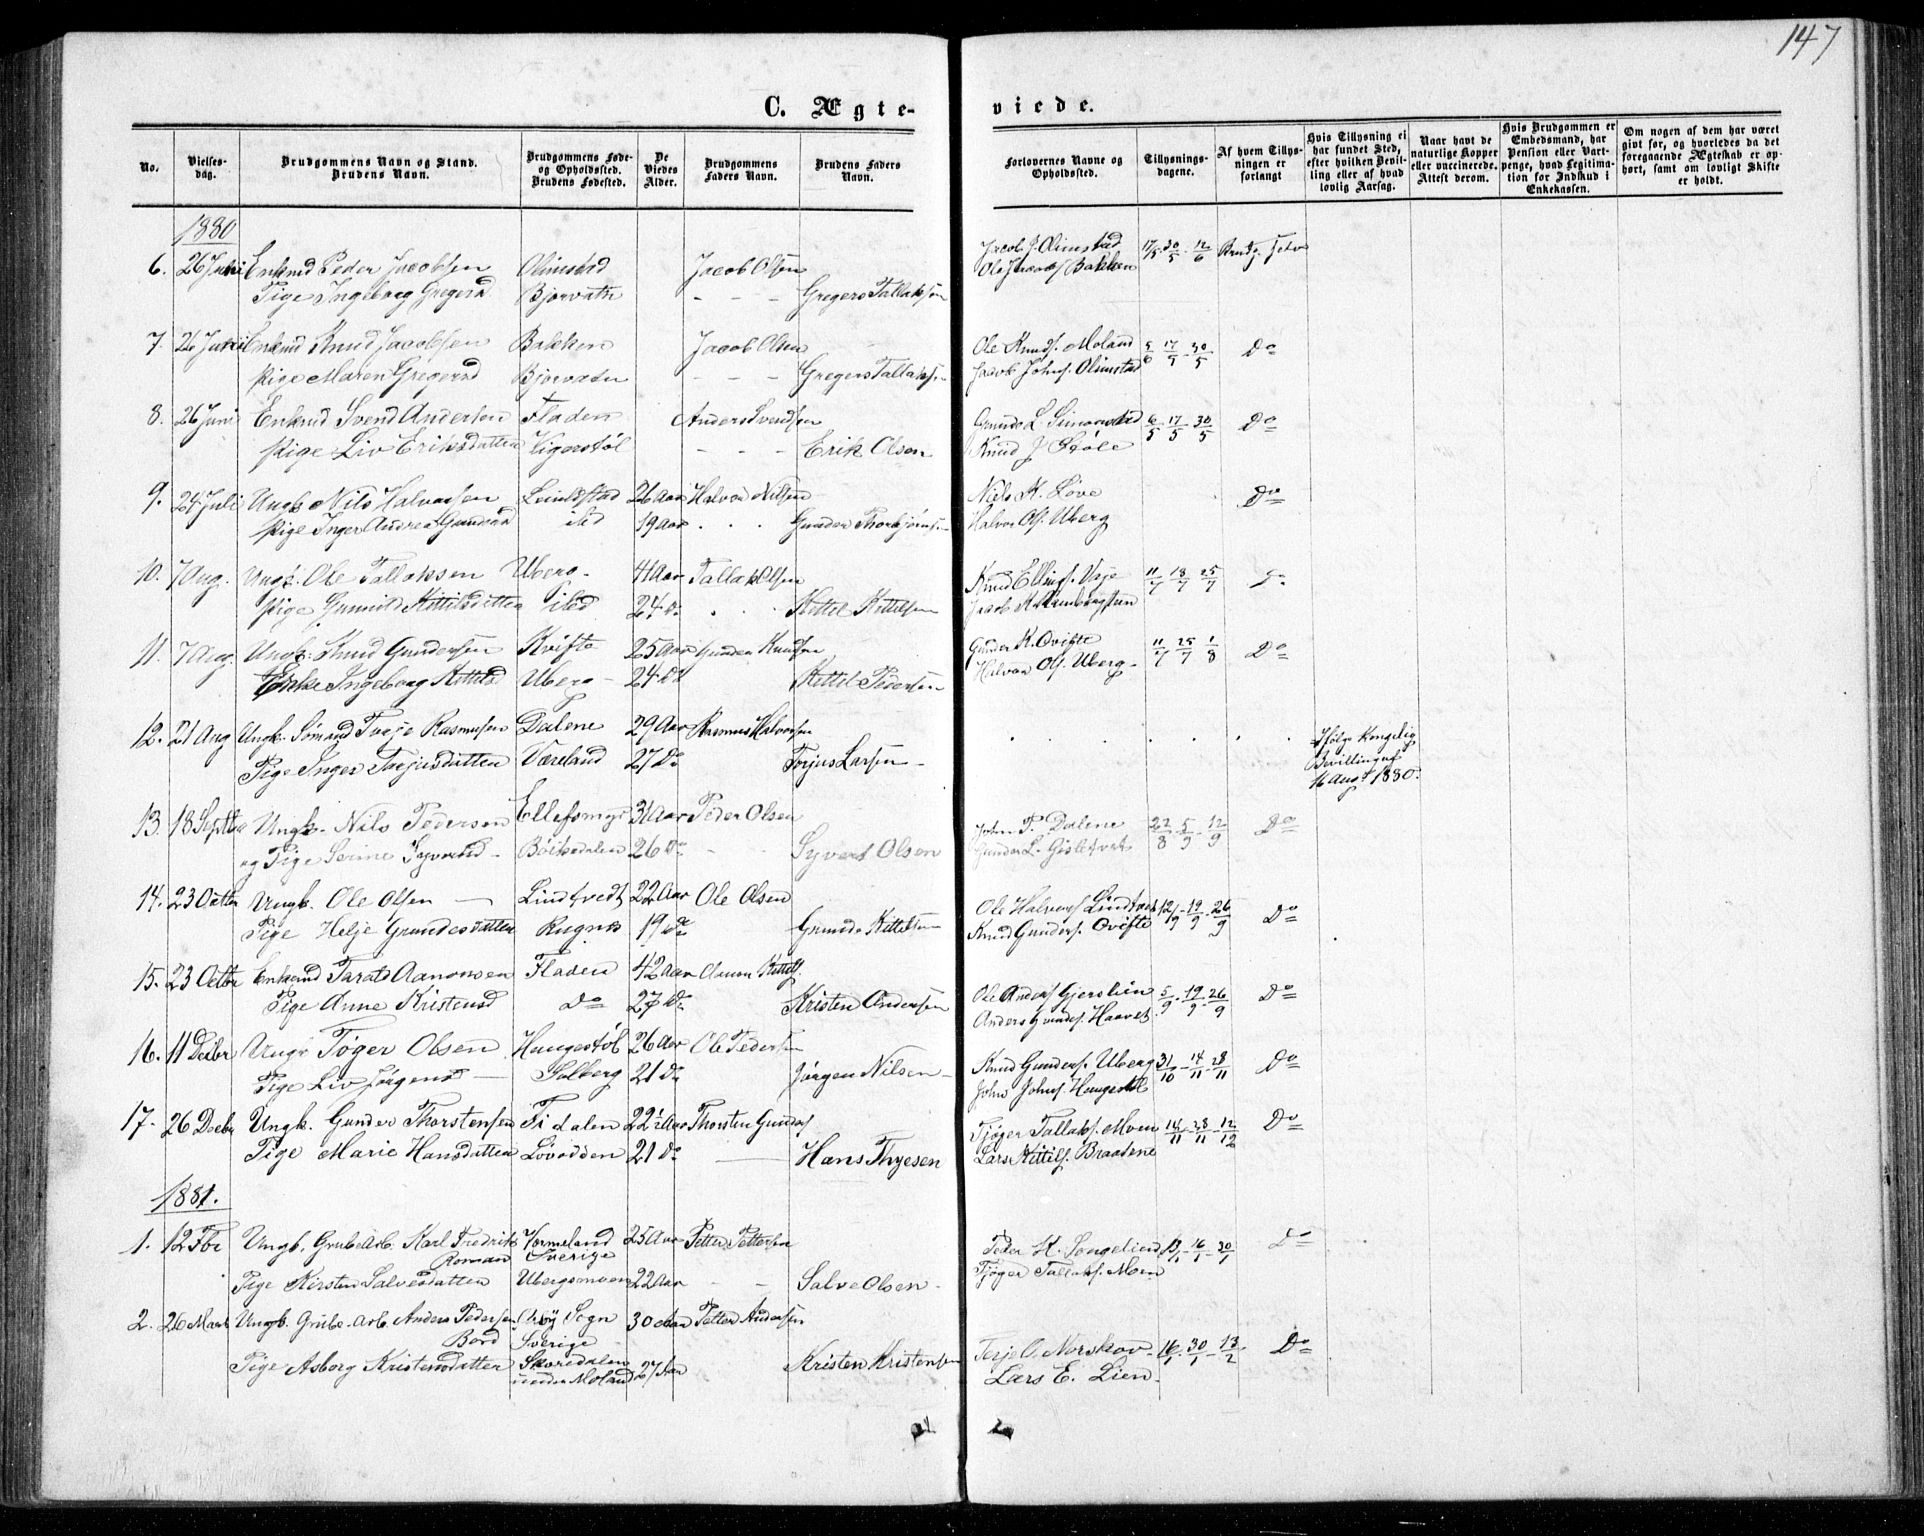 147
C. Ægte-
viede.
No.
Vielses-
dag.
Brudgommens Navn og Stand.
Brudens Navn.
Brudgommens Føde-
og Opholdssted.
Brudens Fødested.
De
Viedes
Alder.
Brudgommens
Faders Navn.
Brudens Faders
Navn.
Forlovernes Navne og
Opholdssted.
Tillysnings-
dagene.
Af hvem Tillys-
ningen er
forlangt
Hvis Tillysning ei
har fundet Sted,
efter hvilken Bevil-
ling eller af hvad
lovlig Aarsag.
Naar havt de
naturlige Kopper
eller vaccinerede.
Attest derom.
Hvis Brudgommen er
Embedsmand, har
Pension eller Vart-
penge, hvad Legitima-
tion for Indskud i
Enkekassen.
Om nogen af dem har været
givt før, og hvorledes da det
foregaaende Ægteskab er op-
hørt, samt om lovligt Skifte
er holdt.
1880
6. 26 Juni Enkmd Peder Jacobsen Olimstad Jacob Olsen Jacob J. Olimstad 17/5 30/5 12/6
Pige Ingeborg Gregersd Bjorvatn - - - Gregers Tallaksen Bakken
7. 26 Juni Enkmd Knud Jacobsen Bakken Jacob Olsen Ole Knuds. Moland 5/6 17/5 30/5 Do
Pige Maren Gregersd Bjorvatn - - - Gregers Tallaksen Jacob Johns. Olimstad
8. 26 Juni Enkmd Svend Andersen Fladen Anders Svendsen Gunde L. Simonstad 6/5 17/5 30/5 Do
Pige Liv Eriksdatter Vigerstøl - - - Erik Olsen Knud J.
9. 24 Juli Ungk Nils Halvorsen Lindstad 26 Aar Halvor Nilsen Niels K. Løve Do
Pige Inger Andrea Gundersd 19 Aar Gunder Thorbjørns. Halvor Ols. Uberg
10. 7 Aug. Ungk. Ole Tallaksen Uberg 41 Aar Tallak Olsen Knud Ellings. 11/7 18/7 25/7
Pige Gunvild Kittilsdatter 24 Do Kittel Kittelsen Jacob
11. 7 Aug. Ungk. Knud Gundersen Kvifte 25 Aar Gunder Knudsen Gunder K. Qvifte 11/7 25/7 1/8 Do
Enke Ingeborg Kittilsd Uberg - 24 Do Kittel Pedersen Halvor Ols. Uberg
12. 21 Aug Ungk. Sømand Terje Rasmusen Dalene 29 Aar Rasmus Halvorsen Ifølge Kongelig
Pige Inger Torjusdatter Væreland 27 Do Torjus Larsen Bevilling af
16 Aug 1880.
13. 18 Septbr Ungk. Nils Pedersen 31 Aar Peder Olsen John P. Dalene 22/8 5/9 12/9 Do
og Pige Serine Syvertsd - 26 Do Syvert Olsen Gunder L.
14. 23 Octbr Ungk. Ole Olsen Lindtvedt 22 Aar Ole Olsen Ole Halvors Lindtvet 12/9 19/9 26/9 Do
Pige Helje Gundesdatter 19 Do Gunde Kittelsen Knud Gunders. Qvifte
15. 23 Octbr Enkemd Tarald Aanonsen Fladen 42 Aar Aanon Kittils. Ole Anders Gjerslien 5/9 19/9 26/9 Do
Pige Anne Kristensd Do 27 Do Kristen Andersen Anders Haavet
16. 11 Decbr Ungk Tøger Olsen Haugestøl 26 Aar Ole Pedersen Knud Gunders. Uberg 31/10 14/11 28/11 Do
Pige Liv Jørgensd Solberg 21 Do Jørgen Nilsen John Johns. Haugestøl
17. 26 Decbr Ungk. Gunder Thorstensen Fidalen 22½ Aar Thorsten Gunders Tjøger Tallaks. Moen 14/11 28/11 12/12 Do
Pige Marie Hansdatter Løvodden 21 Do Hans Thyesen Lars Kittils. Braatene
1881.
1. 12 Fbr Ungk. Grubearb. Karl Fredrik Vermeland 25 Aar Petter Pettersen Peder K. Songelien 16/1 30/1 Do
Roman Sverige
Pige Kirsten Salvesdatter Ubergsmoen 22 Aar - - Salve Olsen Tjøger Tallaks. Moen
2. 26 Marts Ungk. Grube-Arb. Anders Pedersen Sogn 30 Aar Petter Andersen Terje O. Norskov 16/1 30/1 13/2 Do
Bord Sverige
Pige Asborg Kristensdatter Skoredalen 27 Aar Kristen Kristensen Lars E. Lien
under Moland